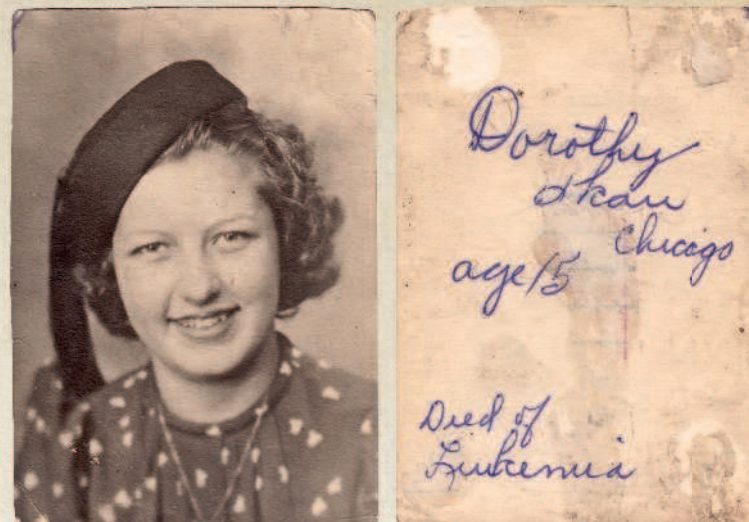 Dorothy
Chicago
age 15
Died of
Leukemia